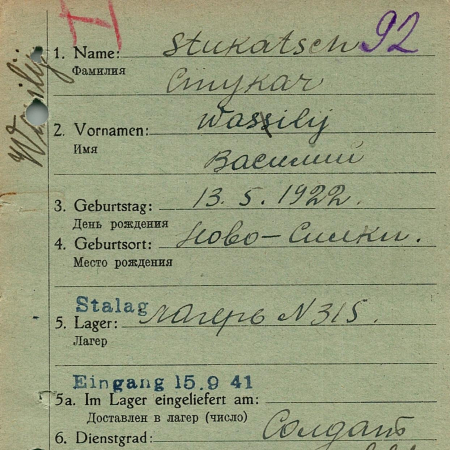 Wassilij
1. Name: Stukatsch 92
Фамилия Стукач
2. Vornamen: Wassilij
Имя Василий
3. Geburtstag: 13. 5. 1922.
День рождения
4. Geburtsort: Ново-Силки.
Место рождения
Stalag
5. Lager: лагерь N 315.
Лагерь
Eingang 15.9 41
5a. Im Lager eingeliefert am:
Доставлен в лагерь (число)
6. Dienstgrad: Солдат